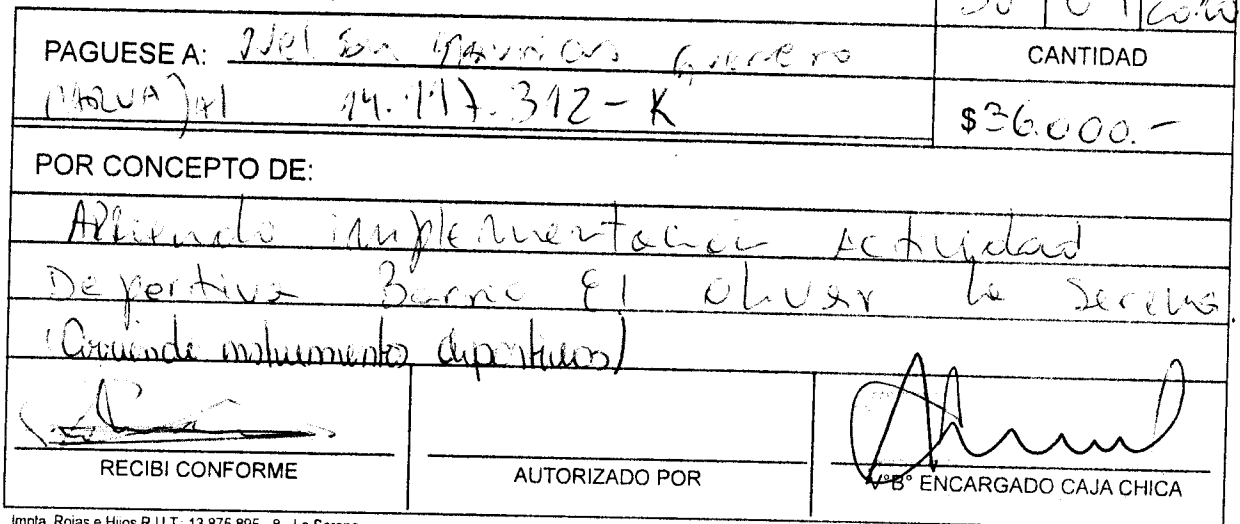 PAGUESE A: Nelson Mauricio Guerrero
14.117.312-K
CANTIDAD
$36.000.-
POR CONCEPTO DE:
Arriendo implementacion Actividad
Deportiva Barrio El Olivar La Serena.
(Arriendo instrumentos deportivos)
RECIBI CONFORME
AUTORIZADO POR
V°B° ENCARGADO CAJA CHICA
Impta. Rojas e Hijos R.U.T.: 13.875.895 - 8 - La Serena